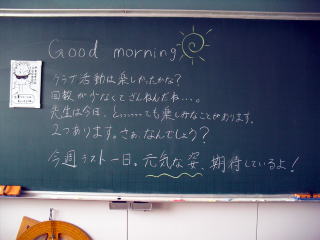 Good morning
クラブ活動は楽しかったかな?
回数が少なくてざんねんだね…。
先生は今日、と……ても楽しみなことがあります。
2つあります。さぁ、なんでしょう?
今週ラスト一日。元気な姿、期待しているよ!